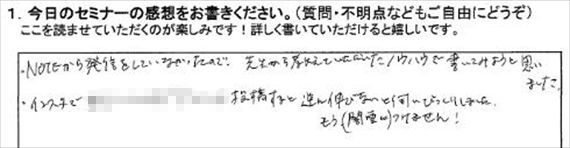 1. 今日のセミナーの感想をお書きください。（質問・不明点などもご自由にどうぞ）
ここを読ませていただくのが楽しみです！詳しく書いていただけると嬉しいです。
・NOTEから発信をしていなかったので、先生から教えていただいたノウハウで書いてみようと思い
ました。
・インスタで 投稿すると 伸びないと伺いびっくりしました。
もう つけません！